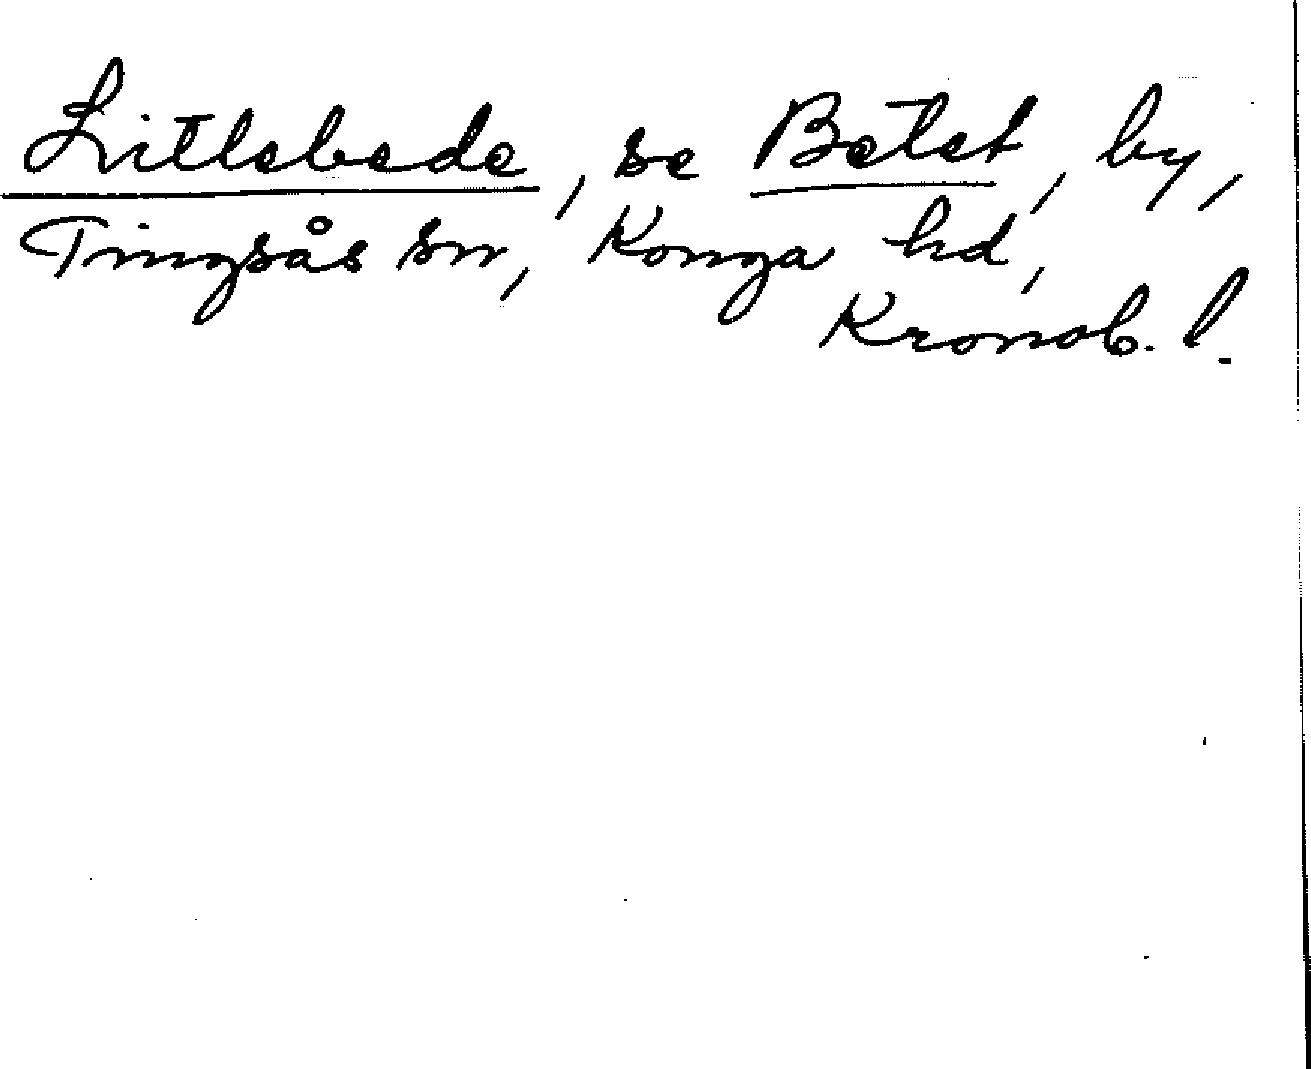 Litlebede, se Betet, by,
Tingsås sn, Konga hd,
Kronob. l.